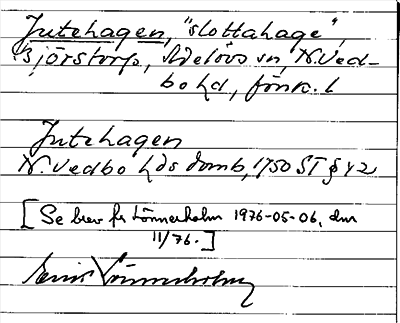 Jutehagen, "slottahage",
Björstorp, Adelövs sn, N. Ved-
bo hd, Jönk. l
Jutehagen
N. Vedbo hds domb, 1750 ST § 42
[Se brev fr Lönnerholm 1976-05-06, dnr
11/76.]
Lönnerholm